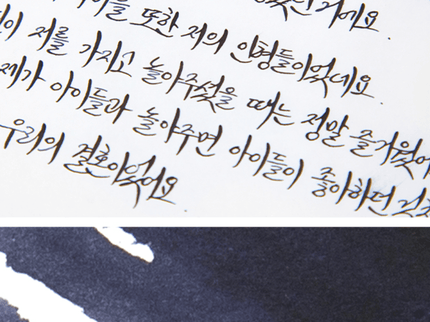 또한 저의 인형들이었네요.
저를 가지고 놀아주셨을 때는 정말 즐거웠
제가 아이들과 놀아주면 아이들이 좋아하던
우리의 결혼이었어요.